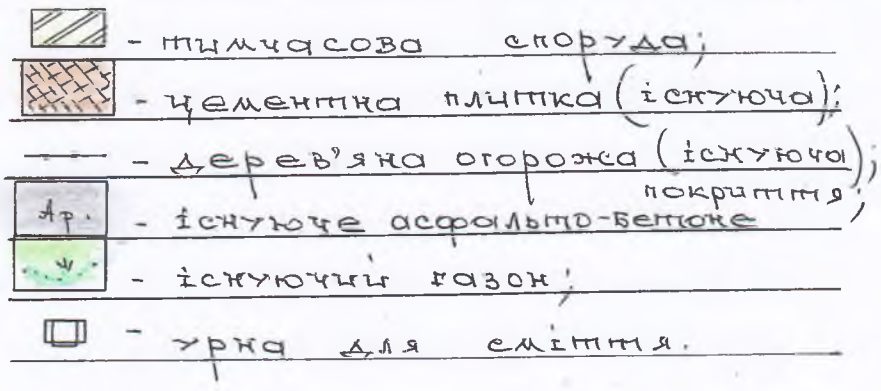 - тимчасова споруда;
- цементна плитка (існуюча);
- дерев'яна огорожа (існуюча);
Ар. - існуюче асфальто-бетоне покриття;
- існуючий газон;
- урна для сміття.